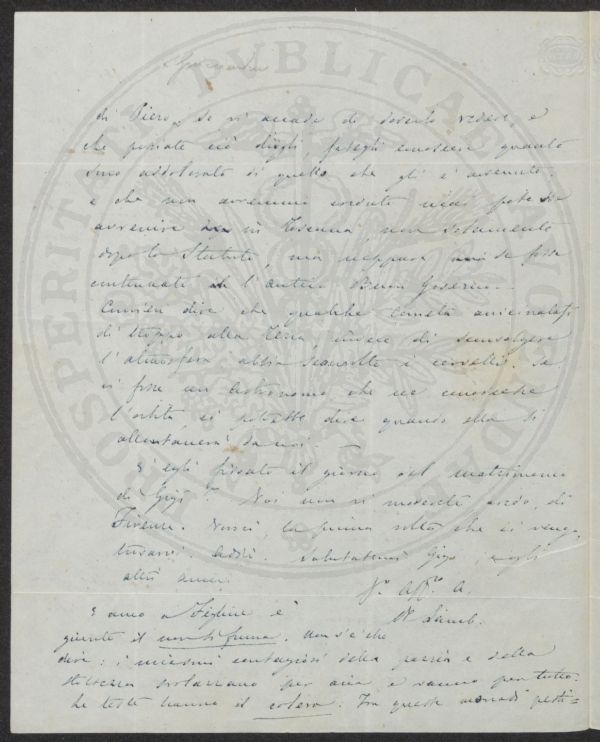 di Piero, se vi accade di doverlo vedere, e
che possiate ciò dirgli, fategli conoscere quanto
sono addolorato di quello che gli è avvenuto,
e che non avremmo creduto mai potesse
avvenire in Toscana, non solamente
dopo lo Statuto, ma neppure se fosse
continuato l'antico Buon Governo.
Convien dire che qualche cometa avvicinatasi
di troppo alla Terra invece di sconvolgere
l'atmosfera abbia sconvolto i cervelli. Se
vi fosse un Astronomo che ne conoscesse
l'orbita ci potrebbe dire quando ella si
allontanerà da noi. —
È egli fissato il giorno del matrimonio
di Gigi? Noi non vi moverete, credo, di
Firenze. Verrò, la prima volta che ci vengo,
trovarvi. Addio. Salutatemi Gigi, e gli
altri amici.
Vo. Affmo. A.
R. Lamb.
E anco a Figline è
giunto il non si fuma. Non v'è che
dire: i miasmi contagiosi della pazzia e della
stoltezza svolazzano per aria, e vanno per tutto.
Le teste hanno il colera. Fra queste mondi pesti=
PROSPERITATI PVBLICAE